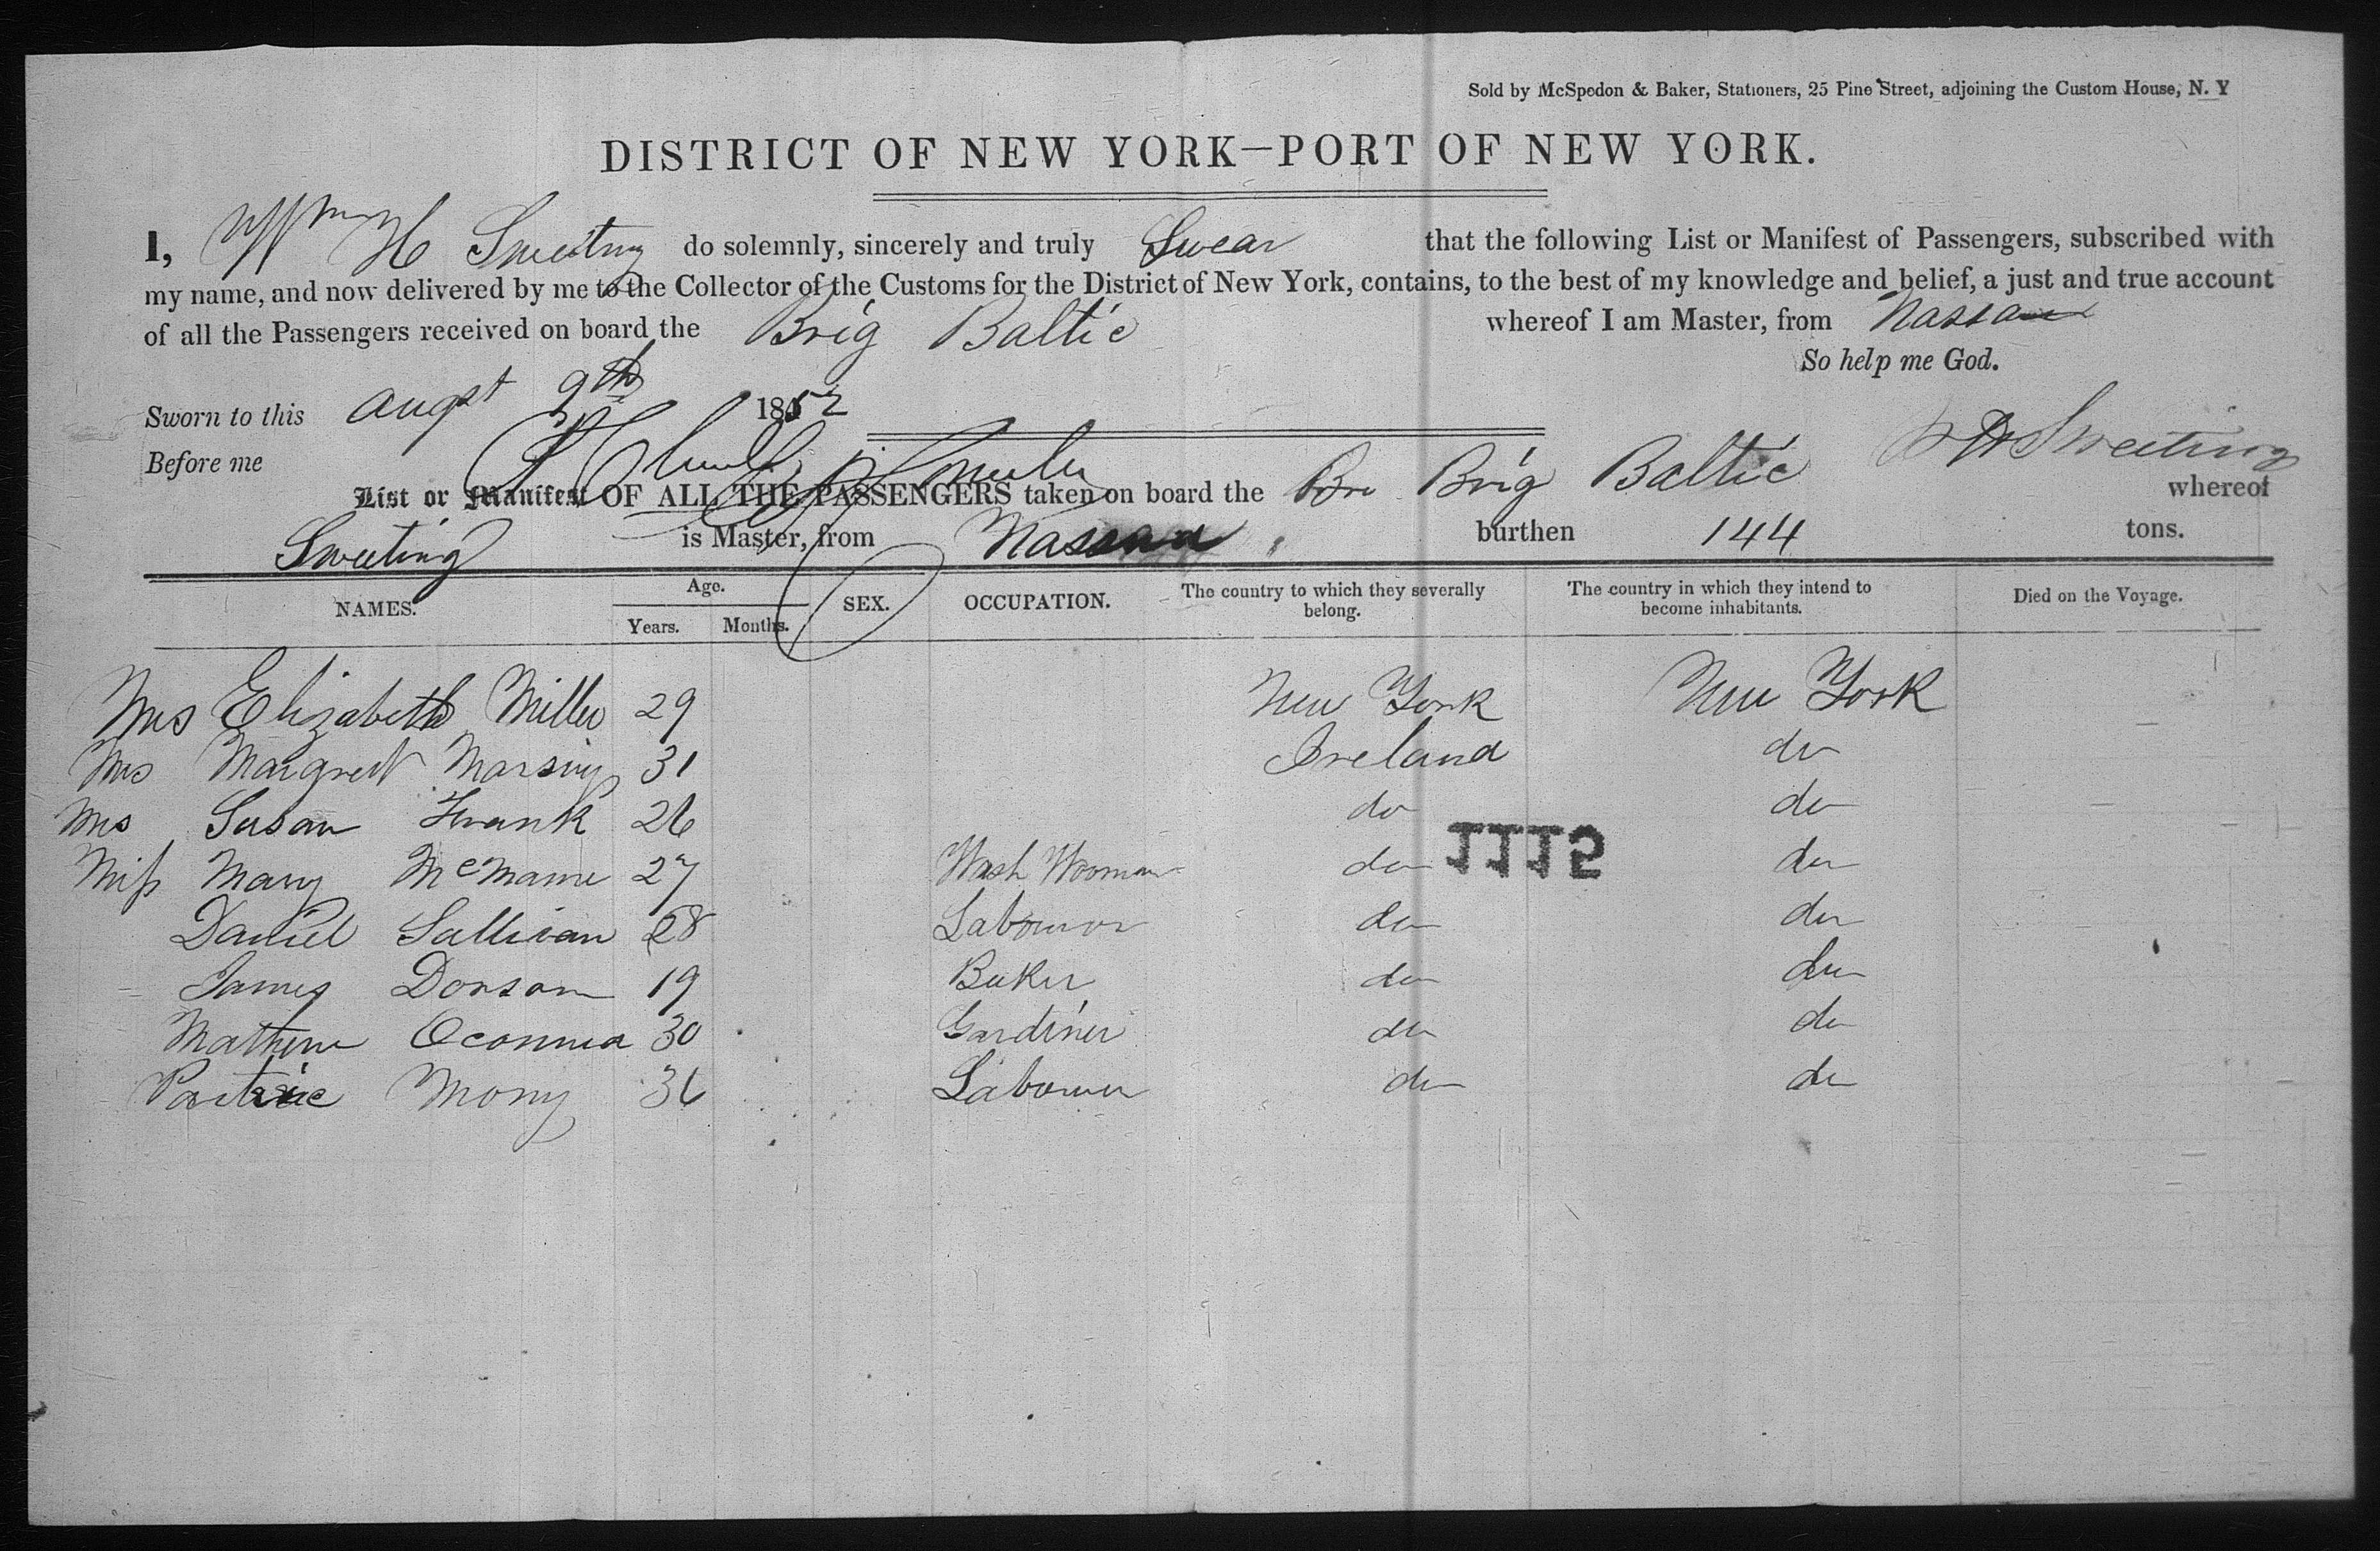 Sold by McSpedon & Baker, Stationers, 25 Pine Street, adjoining the Custom House, N. Y
DISTRICT OF NEW YORK—PORT OF NEW YORK.
I, Wm H Sweeting do solemnly, sincerely and truly Swear that the following List or Manifest of Passengers, subscribed with
my name, and now delivered by me to the Collector of the Customs for the District of New York, contains, to the best of my knowledge and belief, a just and true account
of all the Passengers received on board the Brig Baltic whereof I am Master, from Nassau
So help me God.
Sworn to this augst 9th 1852
Before me W H Sweeting
List or Manifest OF ALL THE PASSENGERS taken on board the Br Brig Baltic whereof
Sweeting is Master, from Nassau burthen 144 tons.
NAMES. Age. Years. Months. SEX. OCCUPATION. The country to which they severally belong. The country in which they intend to become inhabitants. Died on the Voyage.
Mrs Elizabeth Miller 29 New York New York
Mrs Margret 31 Ireland do
Mrs Susan Frank 26 do do
Miss Mary 27 Wash Wooman do do
Daniel Sullivan 28 Labourer do do
James Dorsan 19 Baker do do
Mathew 30 Gardiner do do
Patric Mony 36 Labourer do do
1115